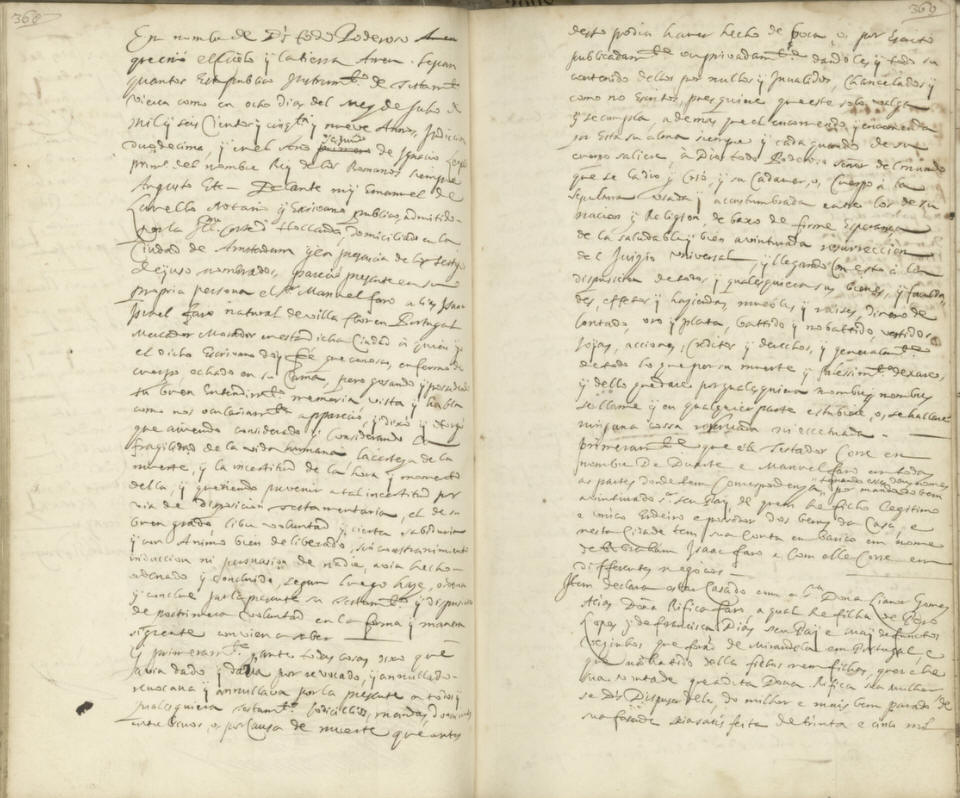 368
En nombre de Ds todo Poderoso Amen
que crio el cielo y la tierra Amen. Sepan
quantos Este publico Instrumto de testamto
vieren como en ocho dias del Mez de Julio de
Mil y seis Cientos y cinqta y nueve Annos, Indicion
duodecima, y en el Año primero de Ignacio
primo del nombre Rey de los Romanos siempre
Augusto Etc — Delante my Emanuel de
Notario y Escrivano publico, admitido
por la Corte d'Hollanda, domiciliado en la
Ciudad de Amsterdam y en presencia de los testigos
de juso nombrados, parecio presente en su
propria persona el Sr Manuel faro alias Isaac
Israel faro natural de villa flor en Portugal
Mercador Morador en esta dicha Ciudad a quien yo
el dicho Escrivano doy fee que conosco, enfermo de
cuerpo echado en su Cama, pero gosando y posseyendo
su buen entendimto memoria vista y habla
como nos ocularmte apparecio, y dixo y
que aviendo considerado y considerando la
fragilidad de la vida humana la certeza de la
muerte, y la incertitud de la hora y momento
della y queriendo prevenir a tal incertitud por
via de disposicion testamentaria, el de su
buen grado libre voluntad y cierta sabiduria
y con Animo bien deliberado, sin constrenimiento
induccion ni persuasion de nadie, avia hecho
ordenado y concluido, segun luego haze, ordena
y concluye por la presente su testamto y disposicion
de postrimera voluntad en la forma y manera
siguiente conviene a saber
Y primeramte y antes todas cosas, dixo que
havia dado y dava por revocado, y annullado
revocava y annullava por la presente a todos y
qualesquiera testamtos Codicillos, mandas, donaciones
entre vivos, o por Causa de muerte que antes
369
desto podia haver hecho de boca, o por Escrito
publicadamte o en privadamte dandoles y todo su
contenido dellos por nullos y Invalidos, Chancelados y
como no Escritos, pues quiere que este solo valga
y se cumpla, ademas que el encomendo y encomienda
su Esta su alma siempre y cada quando de su
cuerpo saliere à Dios todo Poderoso señor del mundo
que se la dio y crió, y su Cadaver, o, Cuerpo à la
sepultura usada y acostumbrada entre los de su
nacion y Religion, debaxo de firme Esperança
de la saludable y bien aventurada resurreccion
del Juizio Universal y llegando Con esto à la
disposicion de todos y qualesquiera sus bienes, y faculta
des, effetos y haziendas, muebles y raises, dinero de
Contado, oro y plata, battido y no battido, vestidos
Joyas, acciones, Creditos y derechos, y generalmte
de todo lo que por su muerte y dexare
y dello quedare por qualesquiera nombre y nombres
se llame y en qualquier parte estubiere, o, se hallare
ninguna cossa reservada ni eccetuada —
primeramte que elle testador Corre en
nombre De Duarte e Manuel faro em todas
as partes donde tem Correspondença, por mandado bem
tomando esses dous nomes
aventurado sr seu Pay, de quem he ficho legitimo
e unico Erdeiro e pessuidor dos bens da Casa, e
nesta Cidade tem sua Conta em banco em nome
de Abraham Isaac faro e Com elle Corre em
differentes negocios —
Item declara estar Casado com a sra Dona Liana Gomes
Alias Dona Rifica faro, a qual he filha de Pero
Lopez y de francisca Dias seu Pay e mai defuntos
vezinhos que forão de Mirandela em Portugal, e
que não ha tido della filhos nem filhas, que he
sua vontade que a dita Dona Rifica sua mulher
se ds Dispuser delle do milhor e mais bem parado de
sua fazenda feita de trinta e cinco mil